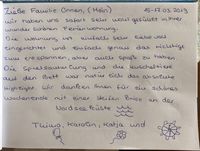 Liebe Familie Onnen, (Mein) 15-17.03.2019
wir haben uns sofort sehr wohl gefühlt in Ihrer
wunderschönen Ferienwohnung.
Die Wohnung ist einfach sehr liebevoll
eingerichtet und einfach genau das richtige
zum entspannen, aber auch Spaß zu haben.
Die Spielesammlung und die Kuscheltiere
auf dem Bett war natürlich das absolute
Highlight. Wir danken Ihnen für ein schönes
Wochenende mit einer steifen Brise an der
Nordseeküste
Karolin, Katja und